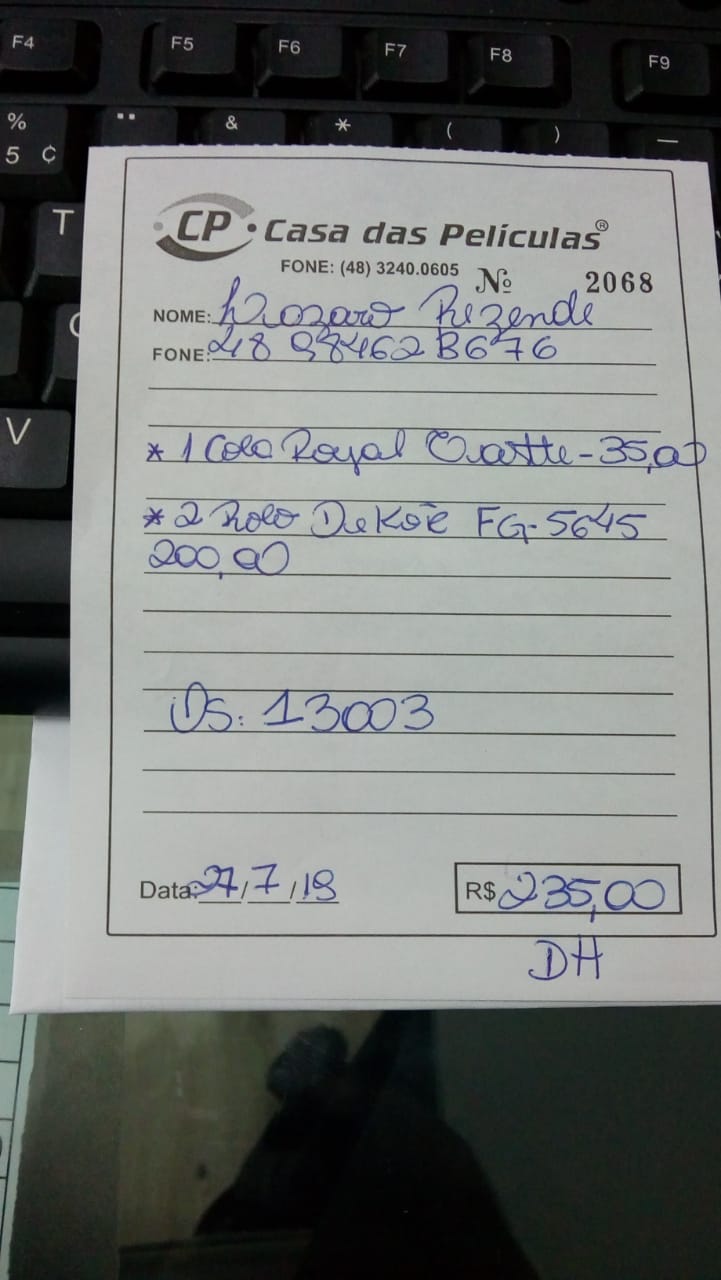 F4 F5 F6 F7 F8 F9
% ¨ & * ( ) —
5 ¢
T
V
CP Casa das Películas®
FONE: (48) 3240.0605 Nº 2068
NOME: Rezende
FONE: 48 984623676
* 1 Cola Royal - 35,00
* 2 Rolo Dekor FG-5645
200,00
OS: 13003
Data: 27/7/18
R$ 235,00
DH